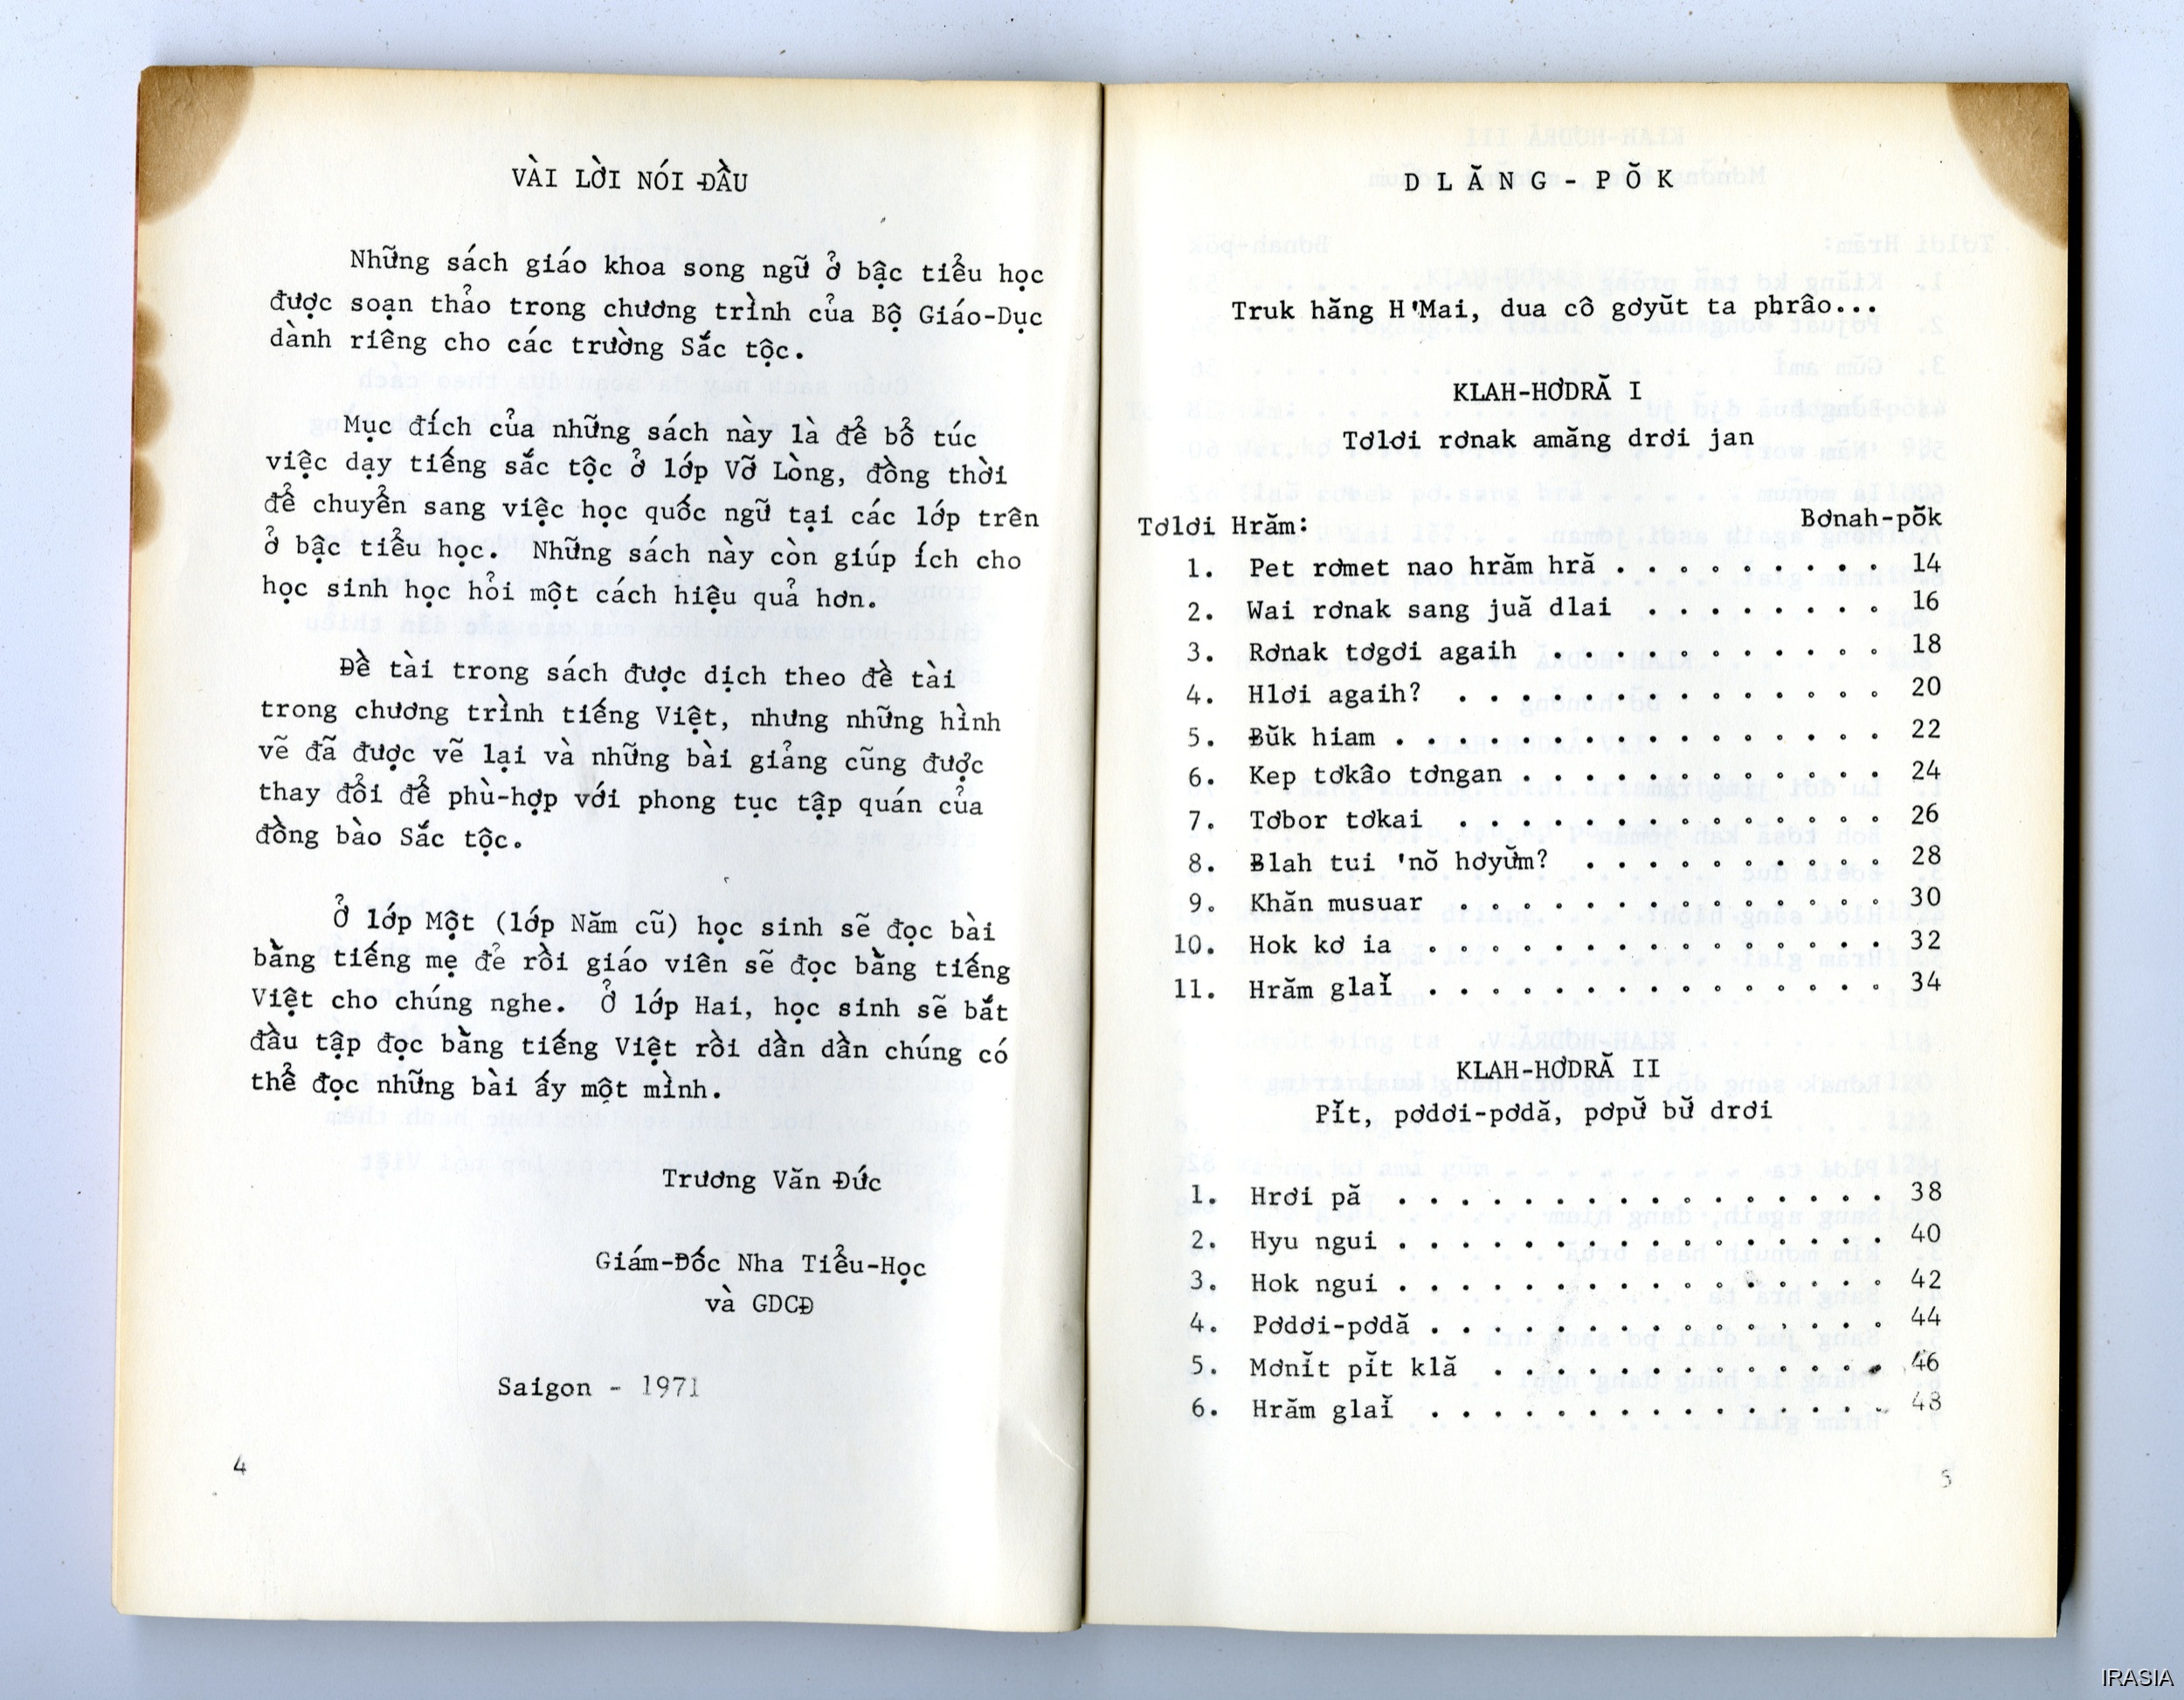 VÀI LỜI NÓI ĐẦU
Những sách giáo khoa song ngữ ở bậc tiểu học
được soạn thảo trong chương trình của Bộ Giáo-Dục
dành riêng cho các trường Sắc tộc.
Mục đích của những sách này là để bổ túc
việc dạy tiếng sắc tộc ở lớp Vỡ Lòng, đồng thời
để chuyển sang việc học quốc ngữ tại các lớp trên
ở bậc tiểu học. Những sách này còn giúp ích cho
học sinh học hỏi một cách hiệu quả hơn.
Đề tài trong sách được dịch theo đề tài
trong chương trình tiếng Việt, nhưng những hình
vẽ đã được vẽ lại và những bài giảng cũng được
thay đổi để phù-hợp với phong tục tập quán của
đồng bào Sắc tộc.
Ở lớp Một (lớp Năm cũ) học sinh sẽ đọc bài
bằng tiếng mẹ đẻ rồi giáo viên sẽ đọc bằng tiếng
Việt cho chúng nghe. Ở lớp Hai, học sinh sẽ bắt
đầu tập đọc bằng tiếng Việt rồi dần dần chúng có
thể đọc những bài ấy một mình.
Trương Văn Đức
Giám-Đốc Nha Tiểu-Học
và GDCĐ
Saigon - 1971
4
DLĂNG-PŎK
Truk hăng H'Mai, dua cô gơyŭt ta phrâo...
KLAH-HƠDRĂ I
Tơlơi rơnak amăng drơi jan
Tơlơi Hrăm: Bơnah-pŏk
1. Pet rơmet nao hrăm hră . . . . . . . . . 14
2. Wai rơnak sang juă dlai . . . . . . . . 16
3. Rơnak tơgơi agaih . . . . . . . . . . . 18
4. Hlơi agaih? . . . . . . . . . . . . . . 20
5. Ƀŭk hiam . . . . . . . . . . . . . . . . 22
6. Kep tơkâo tơngan . . . . . . . . . . . . 24
7. Tơbor tơkai . . . . . . . . . . . . . . 26
8. Ƀlah tui 'nŏ hơyư̆m? . . . . . . . . . . 28
9. Khăn musuar . . . . . . . . . . . . . . 30
10. Hok kơ ia . . . . . . . . . . . . . . . 32
11. Hrăm glaĭ . . . . . . . . . . . . . . . 34
KLAH-HƠDRĂ II
Pĭt, pơdơi-pơdă, pơpư̆ bư̆ drơi
1. Hrơi pă . . . . . . . . . . . . . . . . 38
2. Hyu ngui . . . . . . . . . . . . . . . . 40
3. Hok ngui . . . . . . . . . . . . . . . . 42
4. Pơdơi-pơdă . . . . . . . . . . . . . . . 44
5. Mơnĭt pĭt klă . . . . . . . . . . . . . 46
6. Hrăm glaĭ . . . . . . . . . . . . . . . 48
5
IRASIA